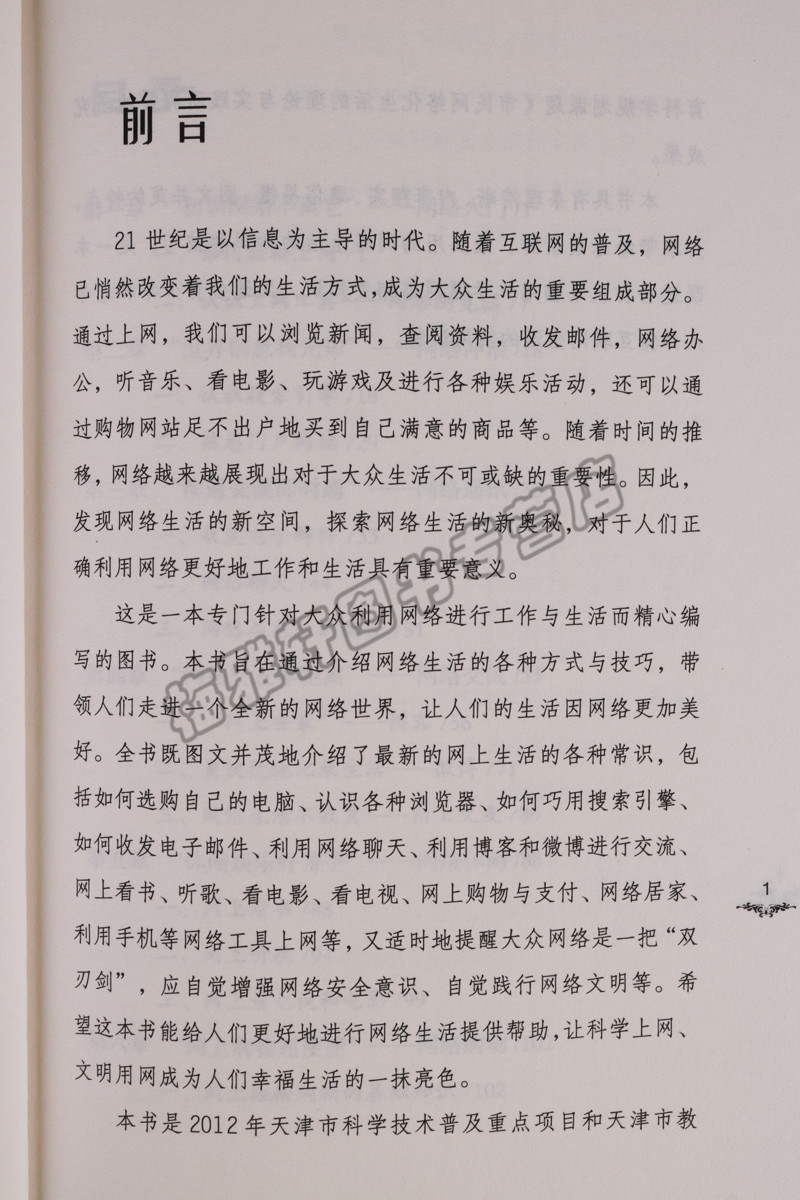 前言
21 世纪是以信息为主导的时代。随着互联网的普及，网络
已悄然改变着我们的生活方式，成为大众生活的重要组成部分。
通过上网，我们可以浏览新闻，查阅资料，收发邮件，网络办
公，听音乐、看电影、玩游戏及进行各种娱乐活动，还可以通
过购物网站足不出户地买到自己满意的商品等。随着时间的推
移，网络越来越展现出对于大众生活不可或缺的重要性。因此，
发现网络生活的新空间，探索网络生活的新奥秘，对于人们正
确利用网络更好地工作和生活具有重要意义。
这是一本专门针对大众利用网络进行工作与生活而精心编
写的图书。本书旨在通过介绍网络生活的各种方式与技巧，带
领人们走进一个全新的网络世界，让人们的生活因网络更加美
好。全书既图文并茂地介绍了最新的网上生活的各种常识，包
括如何选购自己的电脑、认识各种浏览器、如何巧用搜索引擎、
如何收发电子邮件、利用网络聊天、利用博客和微博进行交流、
网上看书、听歌、看电影、看电视、网上购物与支付、网络居家、
利用手机等网络工具上网等，又适时地提醒大众网络是一把“双
刃剑”，应自觉增强网络安全意识、自觉践行网络文明等。希
望这本书能给人们更好地进行网络生活提供帮助，让科学上网、
文明用网成为人们幸福生活的一抹亮色。
本书是 2012 年天津市科学技术普及重点项目和天津市教
1
雅轩图书专营店